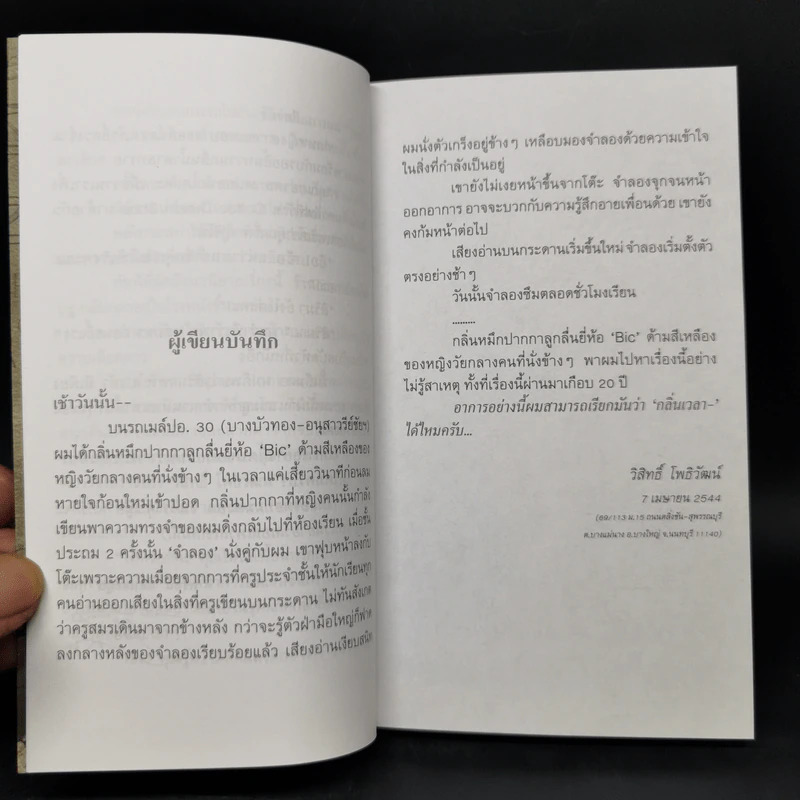 ผู้เขียนบันทึก
เช้าวันนั้น--
บนรถเมล์ปอ. 30 (บางบัวทอง-อนุสาวรีย์ชัยฯ)
ผมได้กลิ่นหมึกปากกาลูกลื่นยี่ห้อ 'Bic' ด้ามสีเหลืองของ
หญิงวัยกลางคนที่นั่งข้างๆ ในเวลาแค่เสี้ยววินาทีก่อนลม
หายใจก้อนใหม่เข้าปอด กลิ่นปากกาที่หญิงคนนั้นกำลัง
เขียนพาความทรงจำของผมดิ่งกลับไปที่ห้องเรียน เมื่อชั้น
ประถม 2 ครั้งนั้น 'จำลอง' นั่งคู่กับผม เขาฟุบหน้าลงกับ
โต๊ะเพราะความเมื่อยจากการที่ครูประจำชั้นให้นักเรียนทุก
คนอ่านออกเสียงในสิ่งที่ครูเขียนบนกระดาน ไม่ทันสังเกต
ว่าครูสมรเดินมาจากข้างหลัง กว่าจะรู้ตัวฝ่ามือใหญ่ก็ฟาด
ลงกลางหลังของจำลองเรียบร้อยแล้ว เสียงอ่านเงียบสนิท
ผมนั่งตัวเกร็งอยู่ข้างๆ เหลือบมองจำลองด้วยความเข้าใจ
ในสิ่งที่กำลังเป็นอยู่
เขายังไม่เงยหน้าขึ้นจากโต๊ะ จำลองจุกจนหน้า
ออกอาการ อาจจะบวกกับความรู้สึกอายเพื่อนด้วย เขายัง
คงก้มหน้าต่อไป
เสียงอ่านบนกระดานเริ่มขึ้นใหม่ จำลองเริ่มตั้งตัว
ตรงอย่างช้าๆ
วันนั้นจำลองซึมตลอดชั่วโมงเรียน
.........
กลิ่นหมึกปากกาลูกลื่นยี่ห้อ 'Bic' ด้ามสีเหลือง
ของหญิงวัยกลางคนที่นั่งข้างๆ พาผมไปหาเรื่องนี้อย่าง
ไม่รู้สาเหตุ ทั้งที่เรื่องนี้ผ่านมาเกือบ 20 ปี
อาการอย่างนี้ผมสามารถเรียกมันว่า 'กลิ่นเวลา-'
ได้ไหมครับ...
วิสิทธิ์ โพธิวัฒน์
7 เมษายน 2544
(69/113 ม.15 ถนนตลิ่งชัน-สุพรรณบุรี
ต.บางแม่นาง อ.บางใหญ่ จ.นนทบุรี 11140)